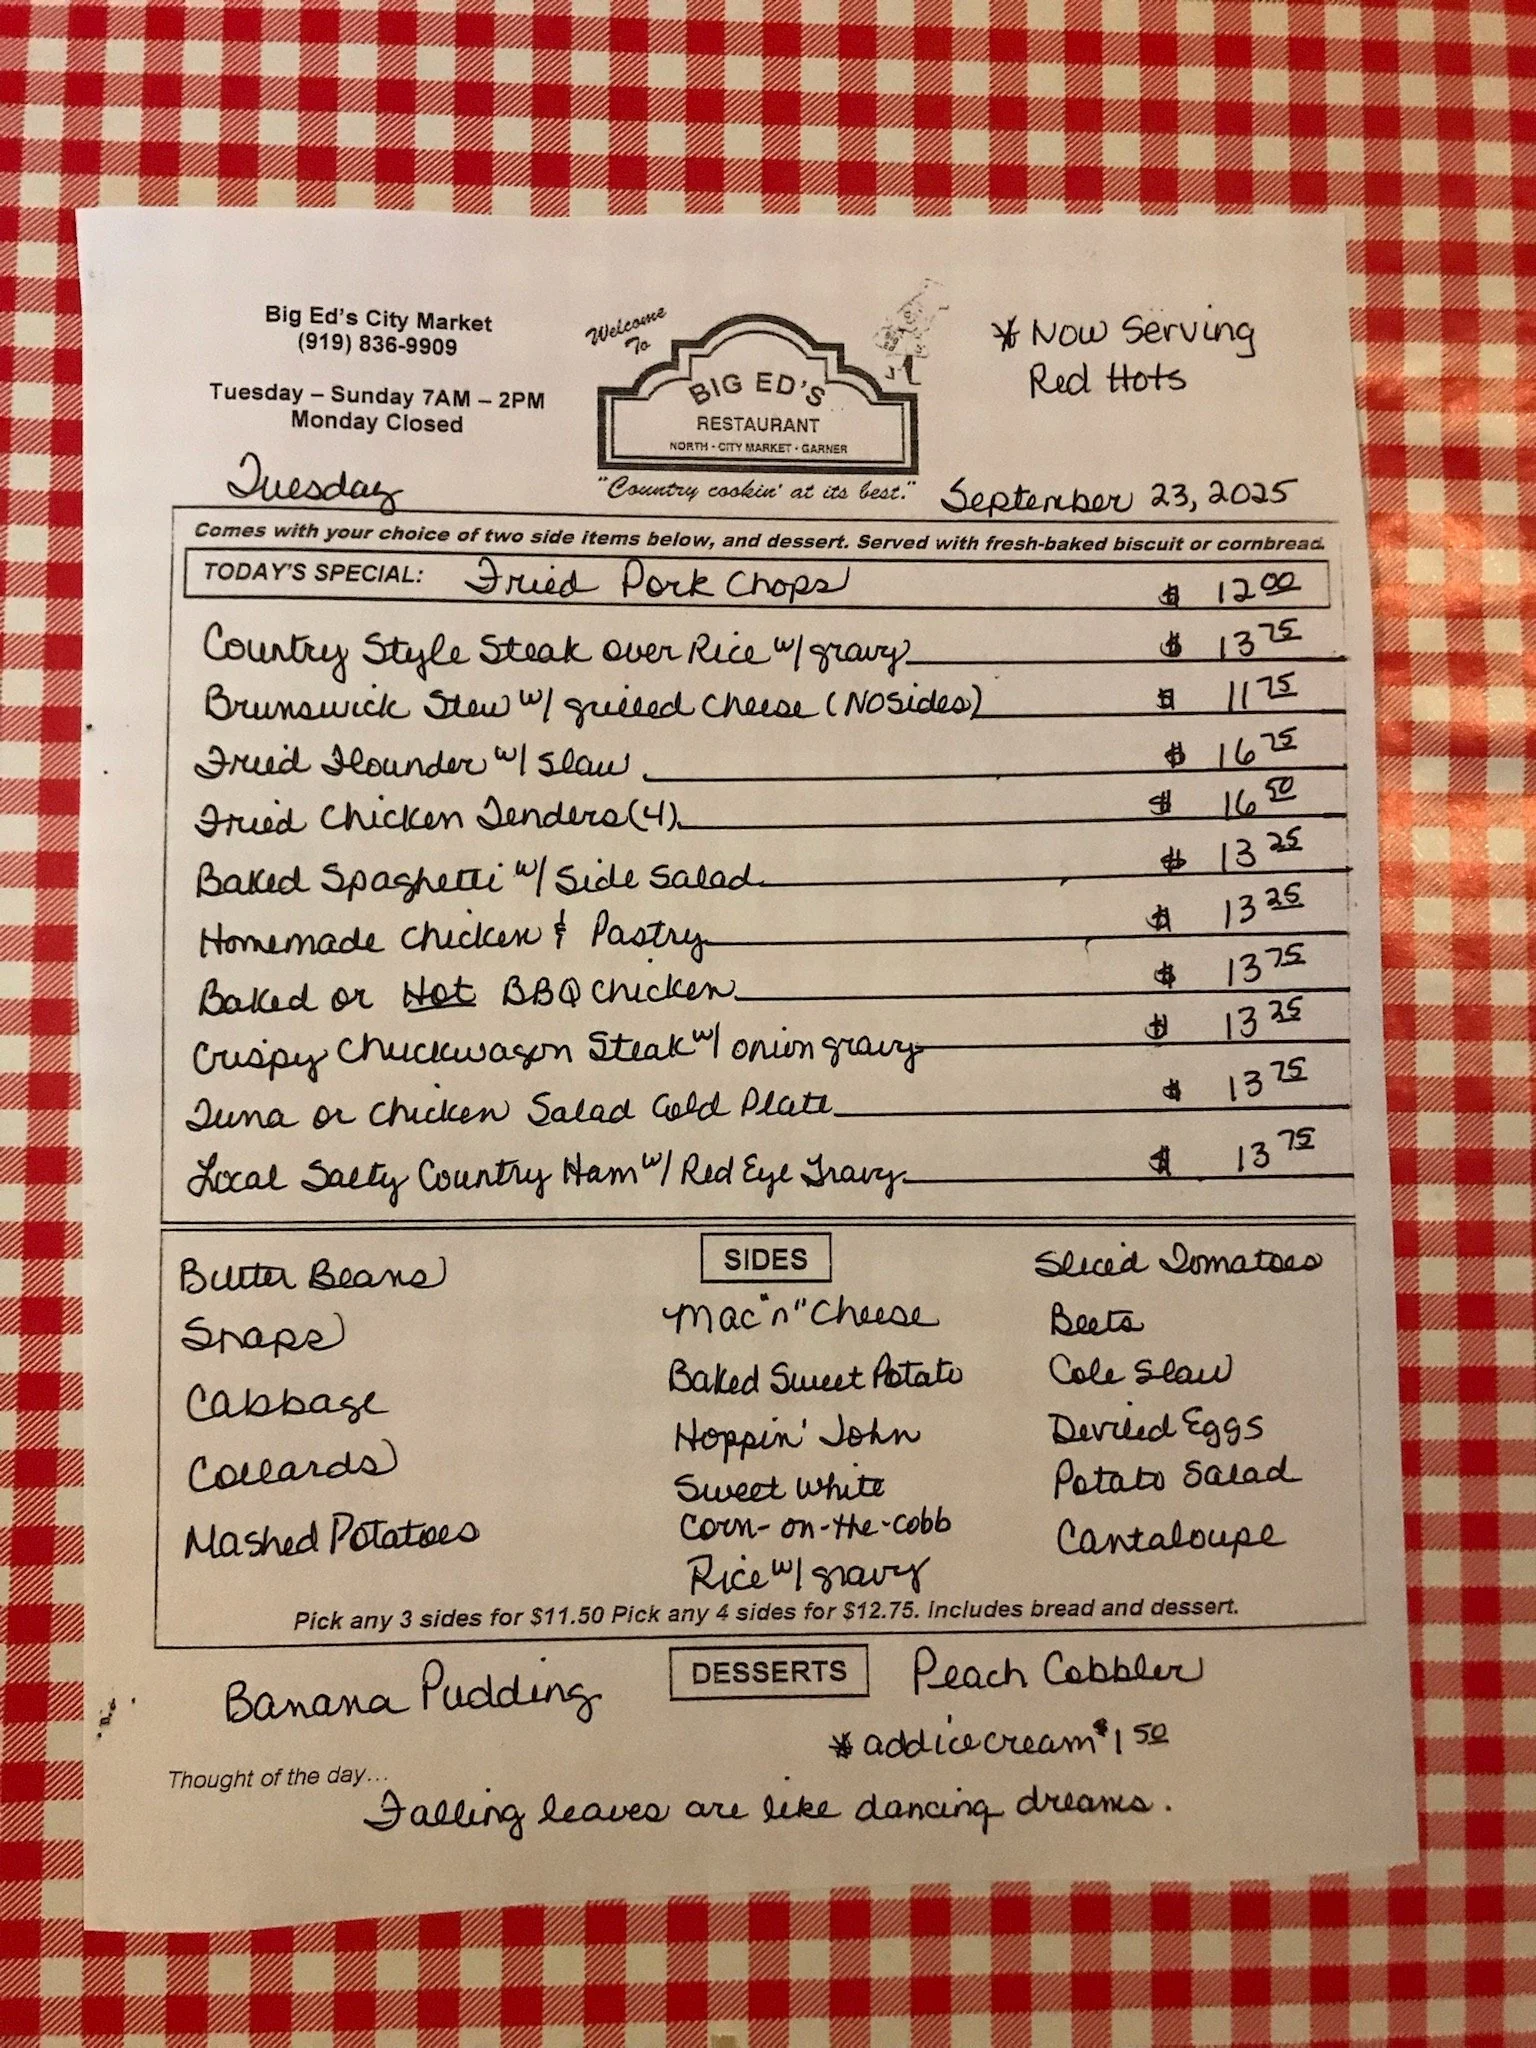 Big Ed's City Market
(919) 836-9909
Tuesday – Sunday 7AM – 2PM
Monday Closed
Welcome
To
BIG ED'S
RESTAURANT
NORTH · CITY MARKET · GARNER
"Country cookin' at its best."
* Now Serving
Red Hots
Tuesday
September 23, 2025
Comes with your choice of two side items below, and dessert. Served with fresh-baked biscuit or cornbread.
TODAY'S SPECIAL: Fried Pork Chops $ 12 00
Country Style Steak over Rice w/ gravy $ 13 75
Brunswick Stew w/ grilled cheese (NO Sides) $ 11 75
Fried Flounder w/ Slaw $ 16 75
Fried Chicken Tenders (4) $ 16 50
Baked Spaghetti w/ Side Salad $ 13 25
Homemade Chicken & Pastry $ 13 25
Baked or Hot BBQ Chicken $ 13 75
Crispy Chuckwagon Steak w/ onion gravy $ 13 25
Tuna or Chicken Salad Cold Plate $ 13 75
Local Salty Country Ham w/ Red Eye Gravy $ 13 75
SIDES
Butter Beans
Snaps
Cabbage
Collards
Mashed Potatoes
Mac "n" Cheese
Baked Sweet Potato
Hoppin' John
Sweet White
Corn-on-the-cobb
Rice w/ gravy
Sliced Tomatoes
Beets
Cole Slaw
Deviled Eggs
Potato Salad
Cantaloupe
Pick any 3 sides for $11.50 Pick any 4 sides for $12.75. Includes bread and dessert.
DESSERTS
Banana Pudding
Peach Cobbler
* add ice cream $1 50
Thought of the day...
Falling leaves are like dancing dreams.